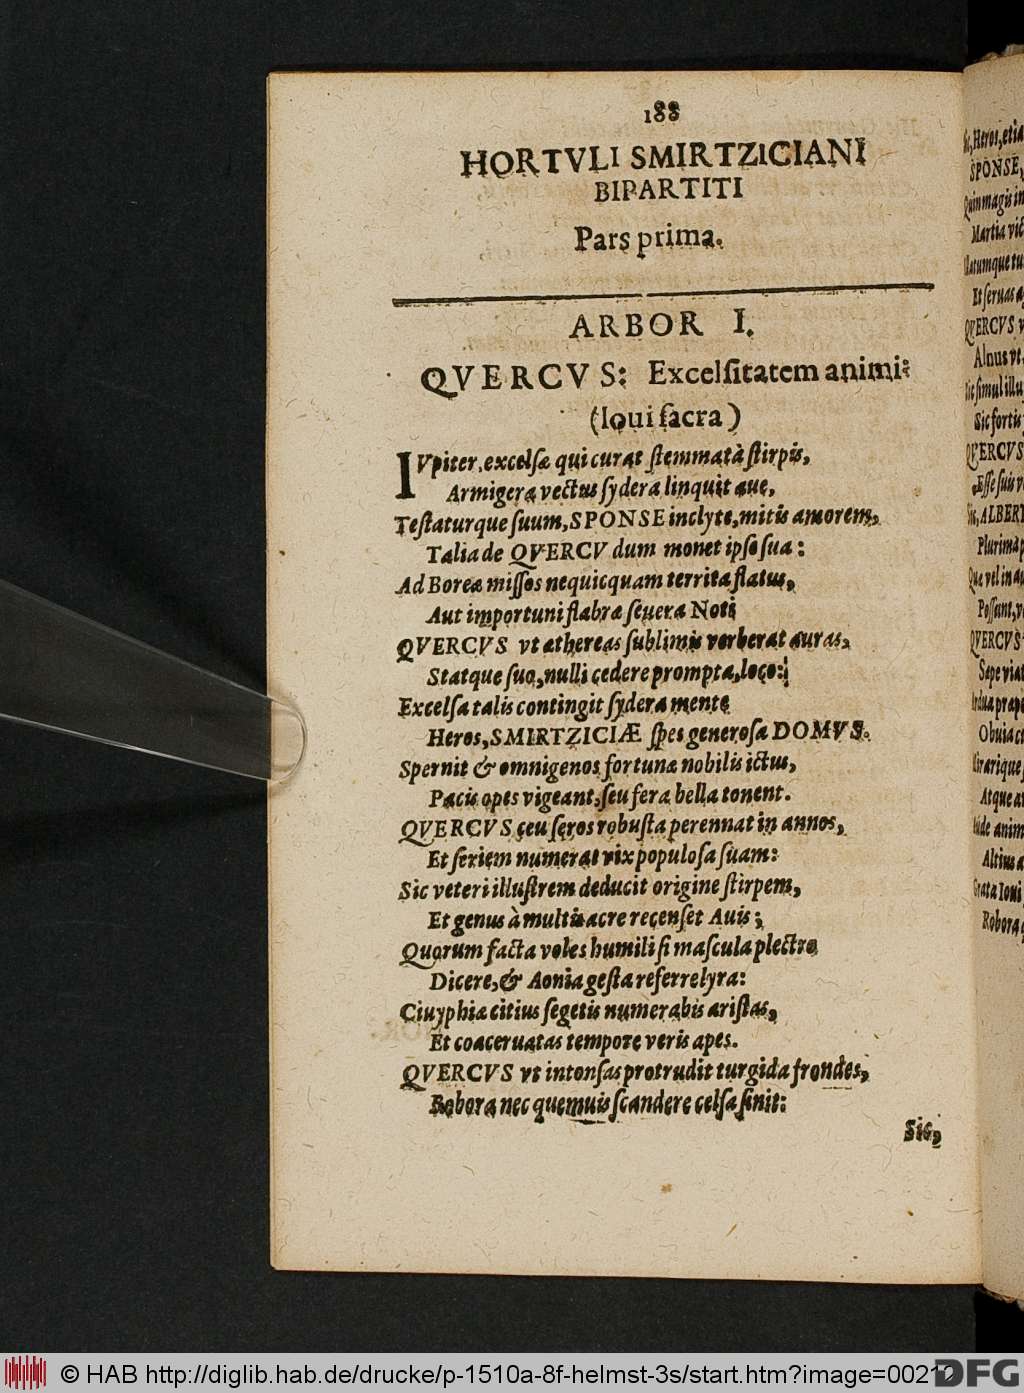 188
HORTVLI SMIRTZICIANI
BIPARTITI
Pars prima.
ARBOR I.
QVERCVS: Excelſitatem animi:
(Ioui ſacra)
IVpiter, excelſæ qui curat ſtemmatà ſtirpis,
Armigera vectus ſydera linquit aue,
Teſtaturque ſuum, SPONSE inclyte, mitis amorem,
Talia de QVERCV dum monet ipſe ſua:
Ad Boreæ miſſos nequicquam territa flatus,
Aut importuni flabra ſeuera Noti
QVERCVS vt æthereas ſublimis verberat auras,
Statque ſuo, nulli cedere prompta, loco:
Excelſa talis contingit ſydera mente
Heros, SMIRTZICIÆ ſpes generoſa DOMVS.
Spernit & omnigenos fortunæ nobilis ictus,
Pacis opes vigeant, ſeu fera bella tonent.
QVERCVS ceu ſeros robuſta perennat in annos,
Et ſeriem numerat vix populoſa ſuam:
Sic veteri illuſtrem deducit origine ſtirpem,
Et genus à multis acre recenſet Auis;
Quorum facta voles humili ſi maſcula plectro
Dicere, & Aonia geſta referre lyra:
Cinyphiæ citius ſegetis numerabis ariſtas,
Et coaceruatas tempore veris apes.
QVERCVS vt intonſas protrudit turgida frondes,
Robora nec quemuis ſcandere celſa ſinit:
Sic,
Heros, etia
SPONSE,
Quin magis in
Martia vic
Et ſeruas a
QVERCVS v
Alnus vt
Sic ſimul illu
Sic fortis
QVERCVS
Eſſe ſuis v
Sic, ALBER
Plurima p
Quæ vel in au
Poſſunt, v
QVERCVS
Sæpe viat
Obuia cu
Atque a
Altius a
Grata Ioui
Robora
© HAB http://diglib.hab.de/drucke/p-1510a-8f-helmst-3s/start.htm?image=00212
DFG